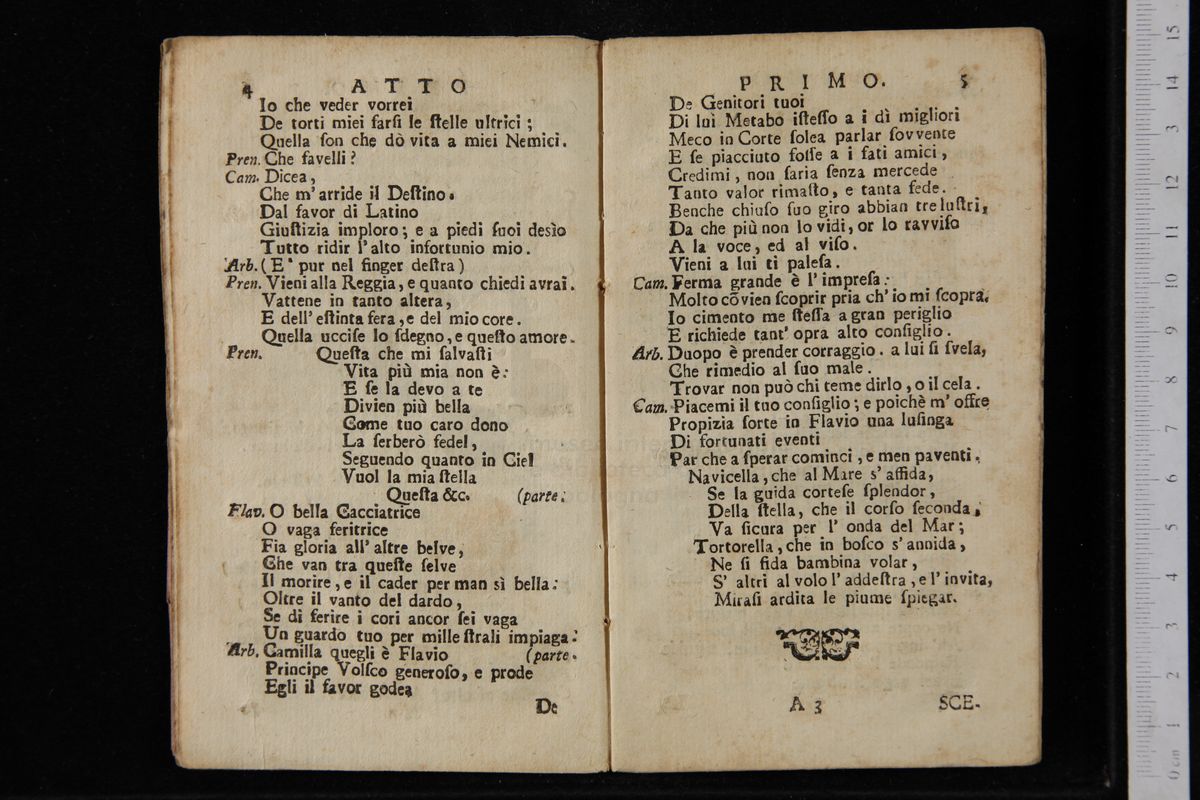 4 ATTO
Io che veder vorrei
De torti miei farſi le ſtelle ultrici;
Quella ſon che dò vita a miei Nemici.
Pren. Che favelli?
Cam. Dicea,
Che m'arride il Deſtino.
Dal favor di Latino
Giuſtizia imploro; e a piedi ſuoi desìo
Tutto ridir l'alto infortunio mio.
Arb. (E' pur nel finger deſtra)
Pren. Vieni alla Reggia, e quanto chiedi avrai.
Vattene in tanto altera,
E dell'eſtinta fera, e del mio core.
Quella ucciſe lo ſdegno, e queſto amore.
Pren. Queſta che mi ſalvaſti
Vita più mia non è:
E ſe la devo a te
Divien più bella
Come tuo caro dono
La ſerberò fedel,
Seguendo quanto in Ciel
Vuol la mia ſtella
Queſta &c. (parte.
Flav. O bella Cacciatrice
O vaga feritrice
Fia gloria all'altre belve,
Che van tra queſte ſelve
Il morire, e il cader per man sì bella:
Oltre il vanto del dardo,
Se di ferire i cori ancor ſei vaga
Un guardo tuo per mille ſtrali impiaga.
Arb. Camilla quegli è Flavio (parte.
Principe Volſco generoſo, e prode
Egli il favor godea
De
PRIMO. 5
De Genitori tuoi
Di lui Metabo iſteſſo a i dì migliori
Meco in Corte ſolea parlar ſovvente
E ſe piacciuto foſſe a i fati amici,
Credimi, non ſaria ſenza mercede
Tanto valor rimaſto, e tanta fede.
Benche chiuſo ſuo giro abbian tre luſtri,
Da che più non lo vidi, or lo ravviſo
A la voce, ed al viſo.
Vieni a lui ti paleſa.
Cam. Ferma grande è l'impreſa:
Molto cõvien ſcoprir pria ch'io mi ſcopra.
Io cimento me ſteſſa a gran periglio
E richiede tant' opra alto conſiglio.
Arb. Duopo è prender corraggio. a lui ſi ſvela,
Che rimedio al ſuo male.
Trovar non può chi teme dirlo, o il cela.
Cam. Piacemi il tuo conſiglio; e poichè m'offre
Propizia ſorte in Flavio una luſinga
Di fortunati eventi
Par che a ſperar cominci, e men paventi.
Navicella, che al Mare s'affida,
Se la guida corteſe ſplendor,
Della ſtella, che il corſo ſeconda,
Va ſicura per l'onda del Mar;
Tortorella, che in boſco s'annida,
Ne ſi fida bambina volar,
S'altri al volo l'addeſtra, e l'invita,
Miraſi ardita le piume ſpiegar.
A 3 SCE.